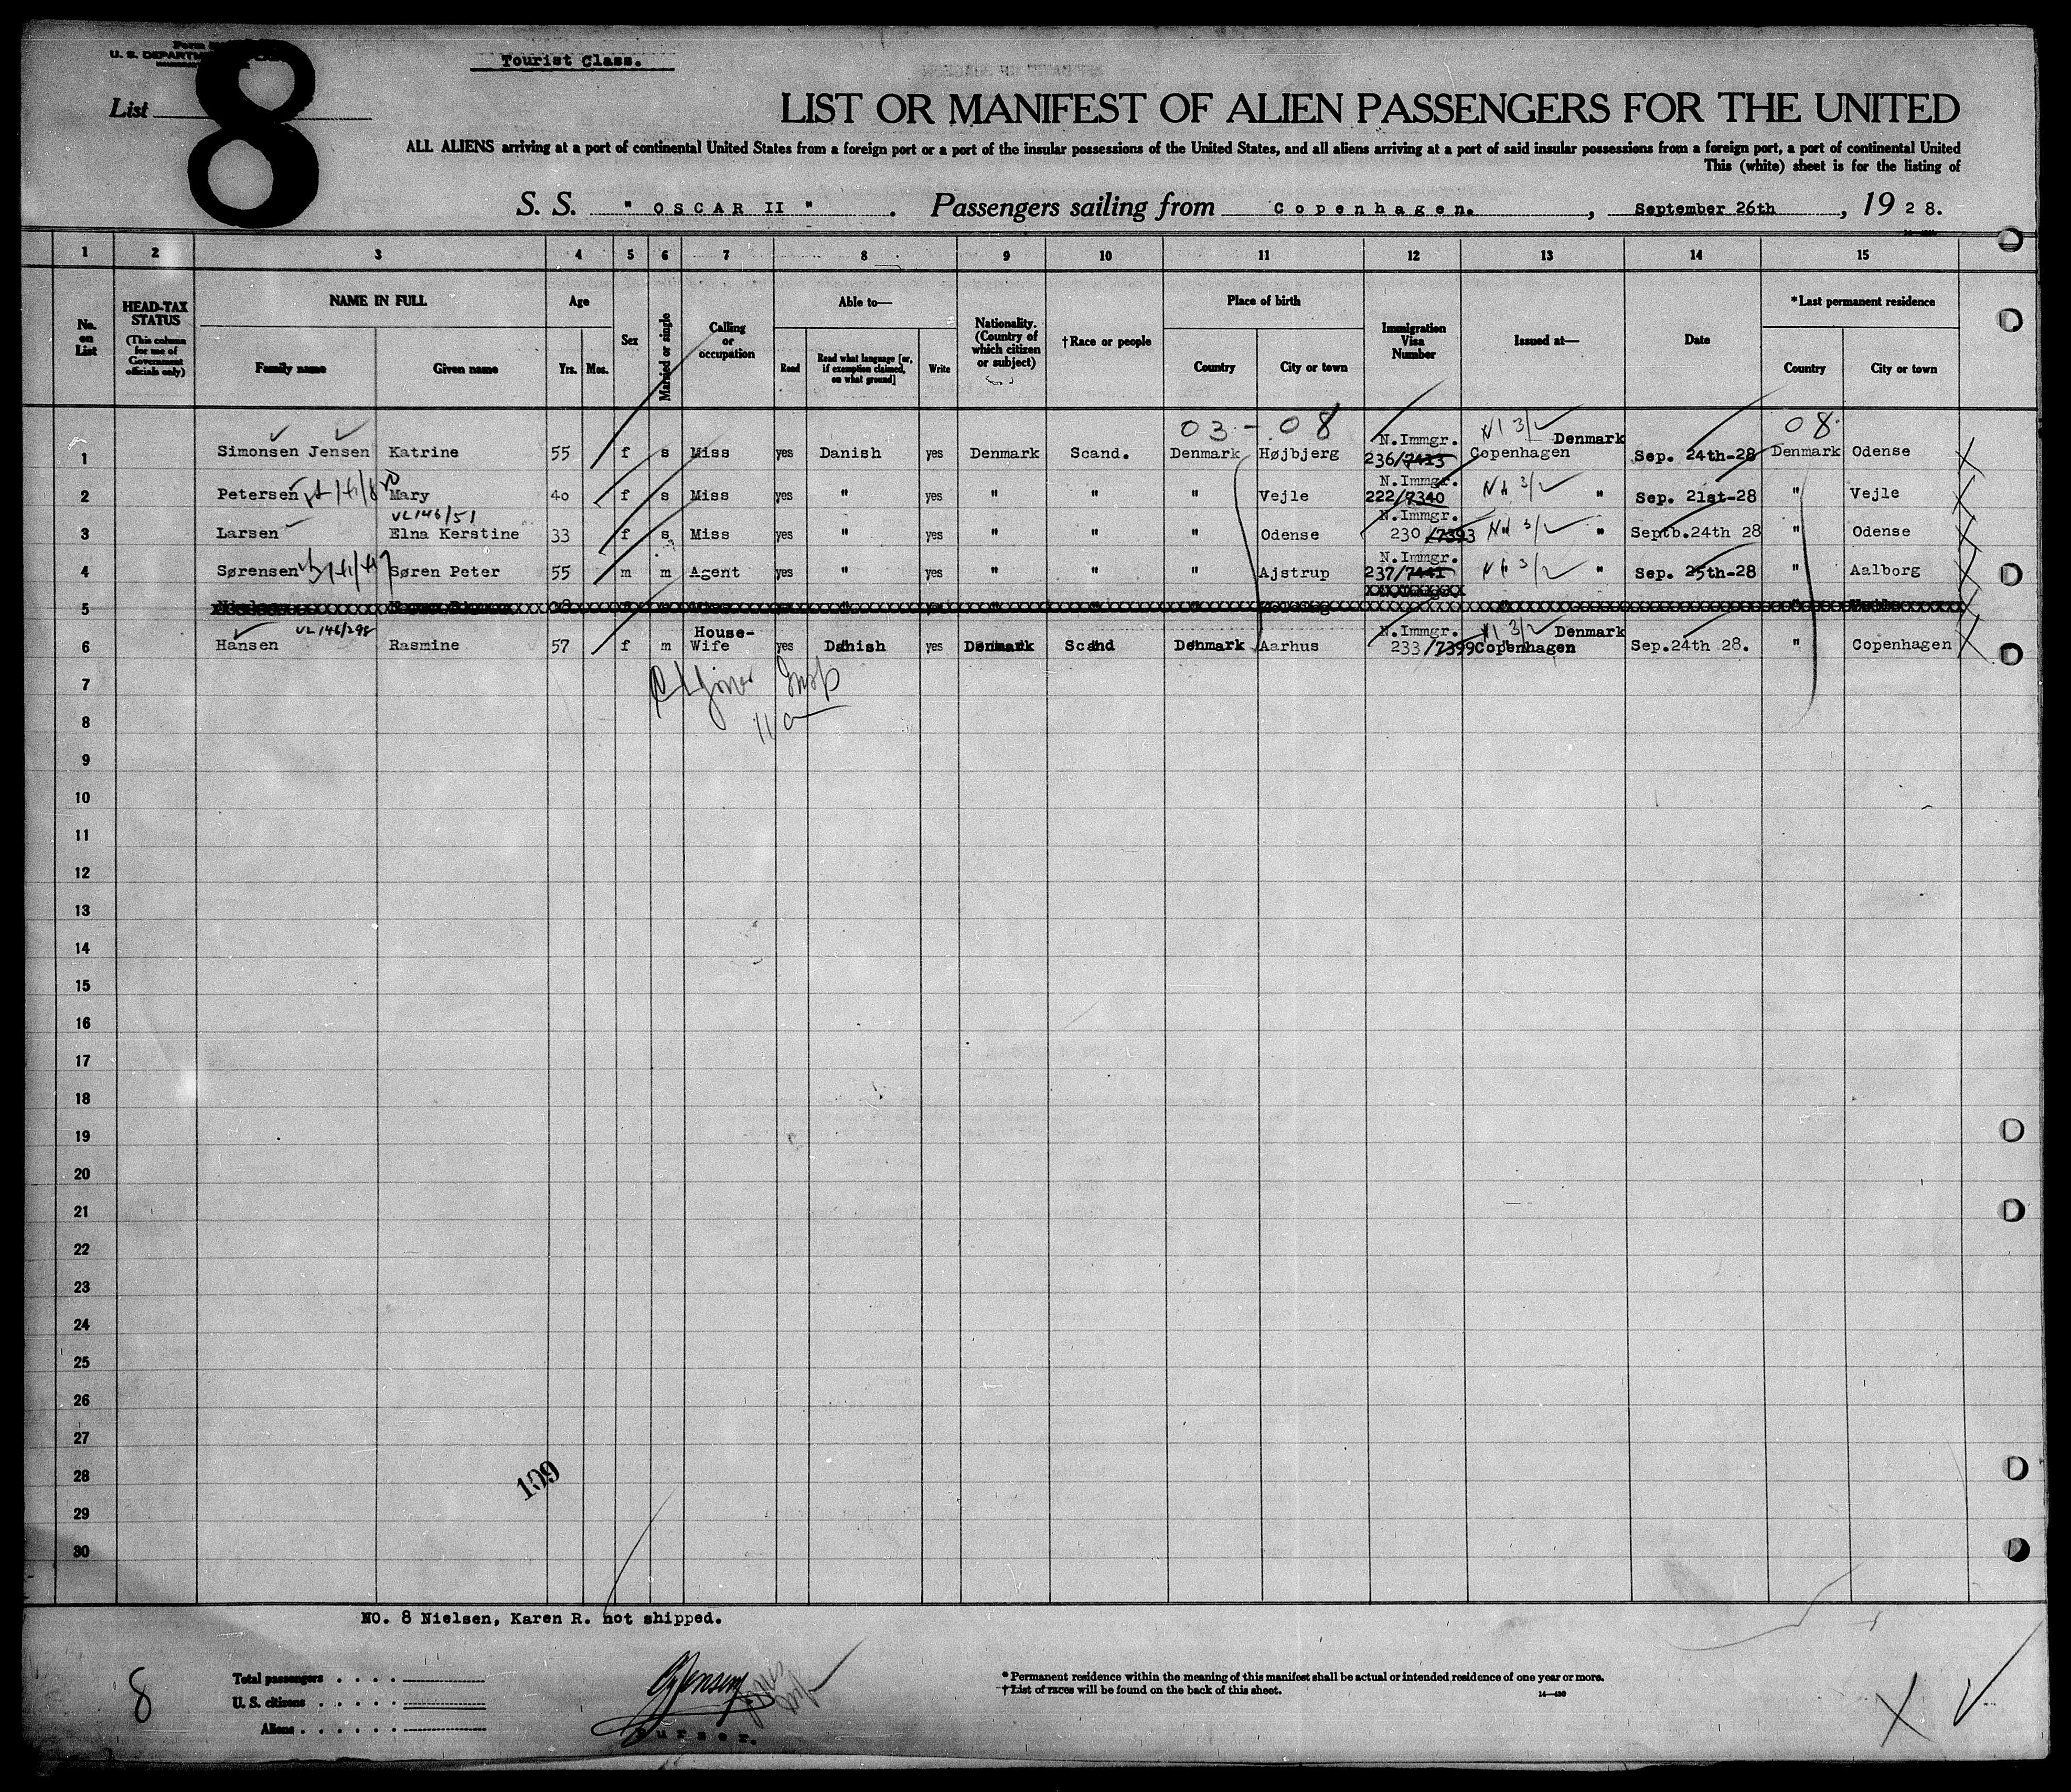 Tourist Class.
List 8
LIST OR MANIFEST OF ALIEN PASSENGERS FOR THE UNITED
ALL ALIENS arriving at a port of continental United States from a foreign port or a port of the insular possessions of the United States, and all aliens arriving at a port of said insular possessions from a foreign port, a port of continental United
This (white) sheet is for the listing of
S. S. " OSCAR II " . Passengers sailing from Copenhagen. , September 26th , 1928.
1 2 3 4 5 6 7 8 9 10 11 12 13 14 15
No. on List
HEAD-TAX STATUS
(This column for use of Government officials only)
NAME IN FULL
Family name Given name
Age
Yrs. Mos.
Sex
Married or single
Calling or occupation
Able to—
Read Read what language [or, if exemption claimed, on what ground] Write
Nationality. (Country of which citizen or subject)
†Race or people
Place of birth
Country City or town
Immigration Visa Number
Issued at—
Date
*Last permanent residence
Country City or town
03 - 08 08
1 Simonsen Jensen Katrine 55 f s Miss yes Danish yes Denmark Scand. Denmark Højbjerg N.Immgr. 236/7413 Denmark Copenhagen Sep. 24th-28 Denmark Odense
2 Petersen Mary 40 f s Miss yes " yes " " " Vejle N.Immgr. 222/7340 " Sep. 21st-28 " Vejle
VL146/51
3 Larsen Elna Kerstine 33 f s Miss yes " yes " " " Odense N.Immgr. 230/7393 " Septb.24th 28 " Odense
4 Sørensen Søren Peter 55 m m Agent yes " yes " " " Ajstrup N.Immgr. 237/7441 " Sep. 25th-28 " Aalborg
5
VL146/298
6 Hansen Rasmine 57 f m House-Wife yes Danish yes Denmark Scand Denmark Aarhus N.Immgr. 233/7399 Denmark Copenhagen Sep.24th 28. " Copenhagen
7
8
9
10
11
12
13
14
15
16
17
18
19
20
21
22
23
24
25
26
27
28
29
30
109
NO. 8 Nielsen, Karen R. not shipped.
8
Total passengers
U. S. citizens
Aliens
Purser.
* Permanent residence within the meaning of this manifest shall be actual or intended residence of one year or more.
† List of races will be found on the back of this sheet.